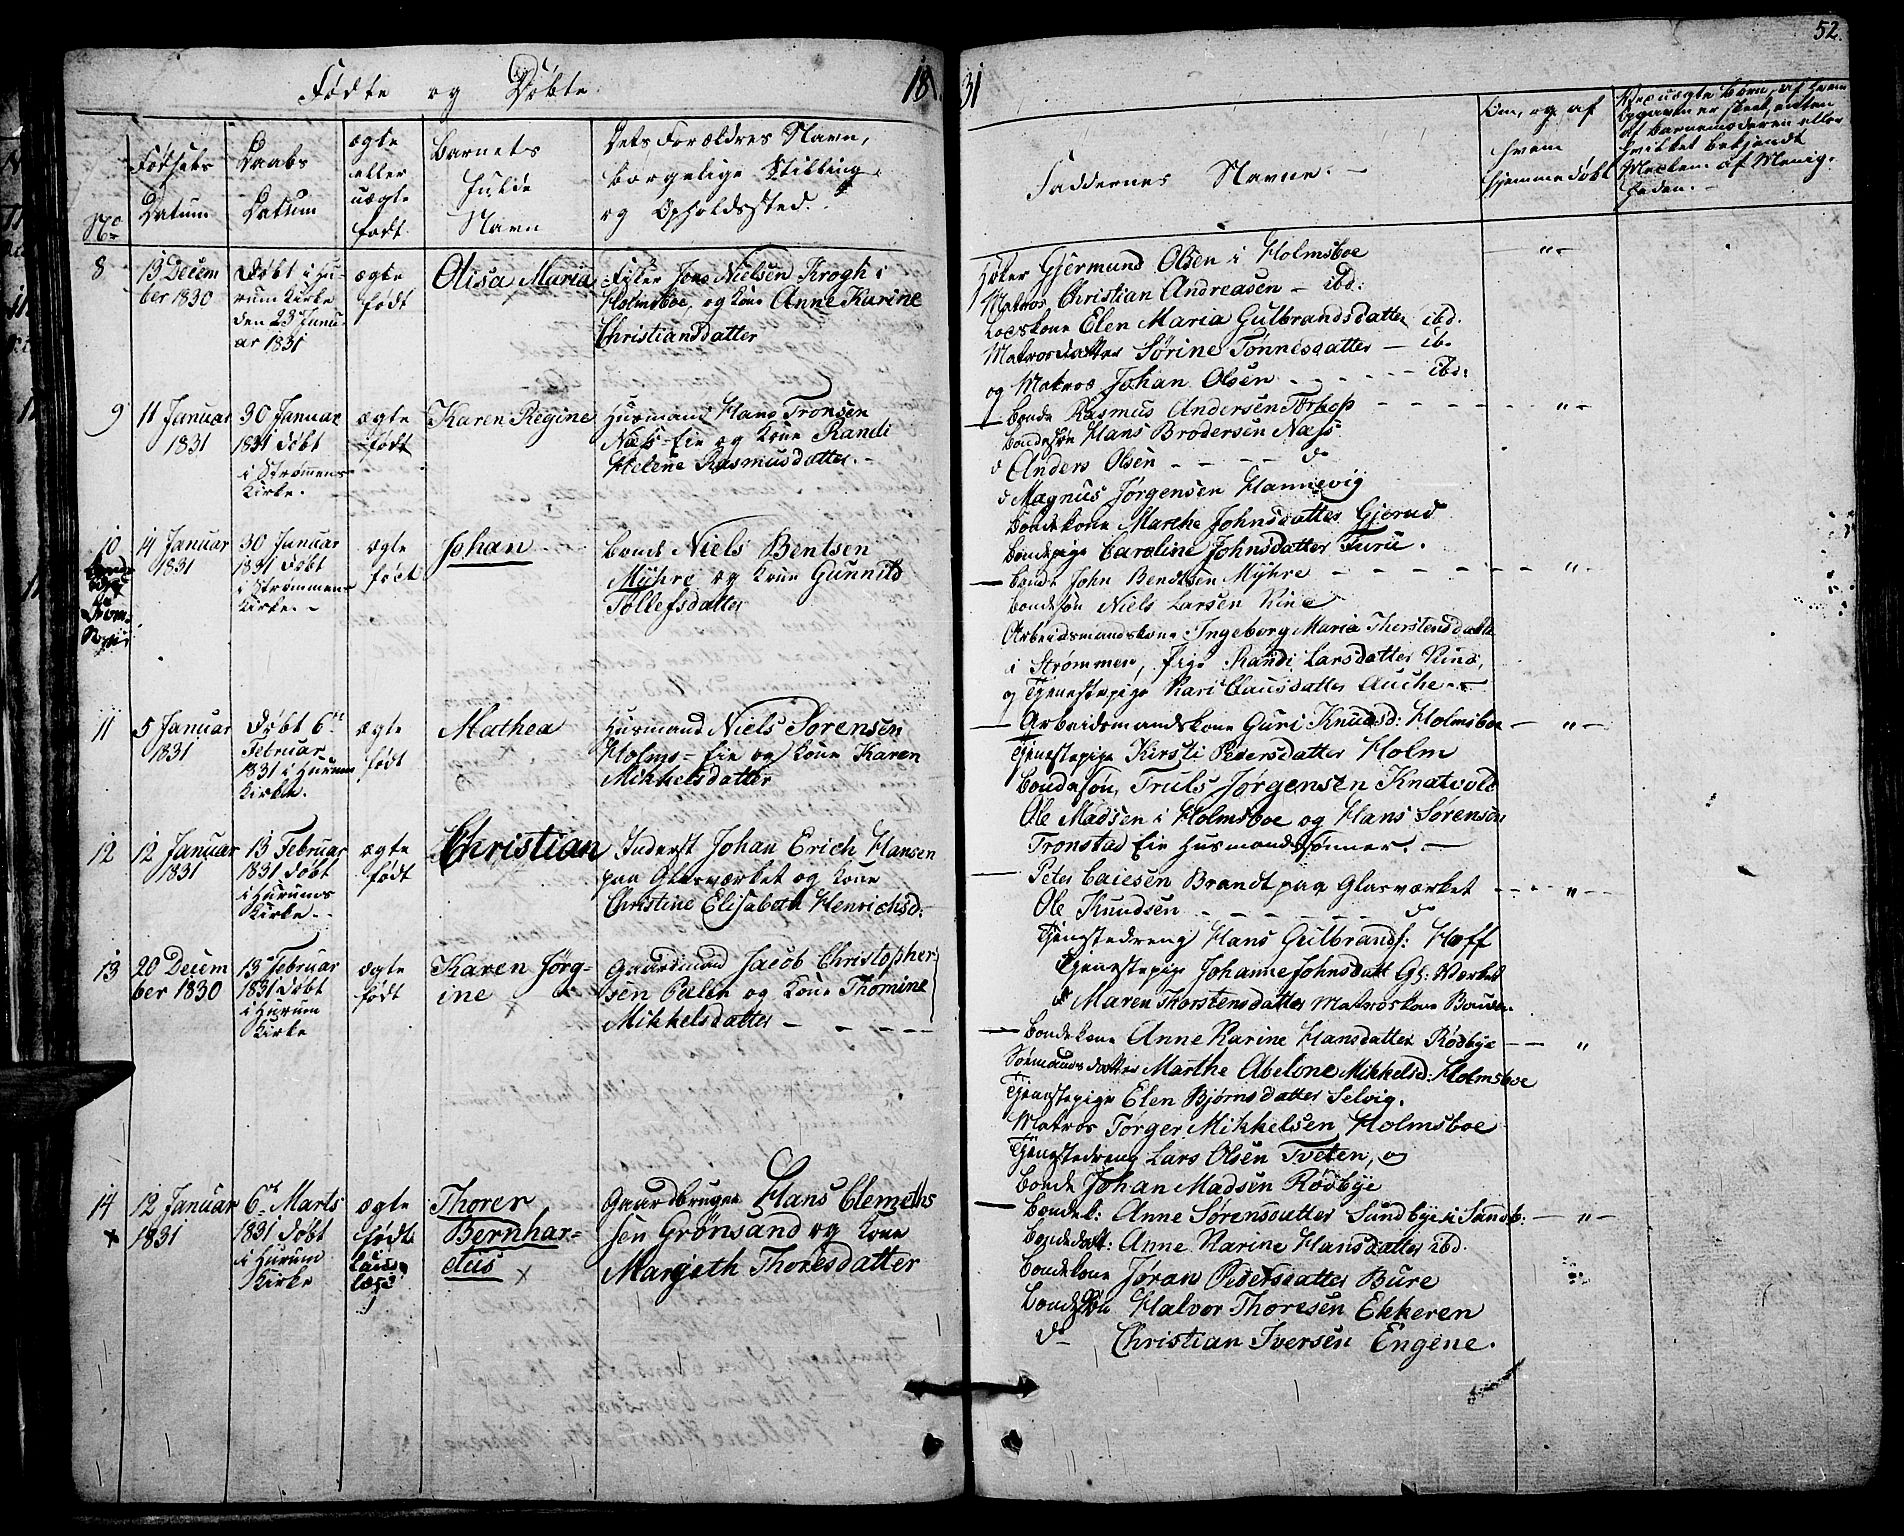 52.
Fødte og Døbte 1831
No
Fødsels Datum
Daabs Datum
ægte eller uægte født.
Barnets fulde Navn
Dets Forældres Navn, borgelige Stilling og Opholdssted.
Faddernes Navne. -
Om, og af hvem hjemmedøbt
8
13 Decem
ber 1830
Døbt i Hu-
rum Kirke
den 23 Janu-
ar 1831
ægte
født
Olisa Maria
Fisker Jens Nielsen Krogh i
Holmsboe, og Kone Anne Karine
Christiansdatter
Gjermund Olsen i Holmsboe
Matros Christian Andreasen - ibd:
Loeskone Elen Maria Gulbrandsdatter ibd.
Matrosdatter Sørine Tønnesdatter - ib.
og Matros Johan Olsen - - - ibd:
9
11 Januar
1831
30 Januar
1831 døbt
i Strømmens
Kirke.
ægte
født
Karen Regine
Husmand Hans Tronsen
Næss-Eie og Kone Randi
Helene Rasmusdatter. -
Bonde Rasmus Andersen Tørkop
Bondesøn Hans Brodersen Næss
d Anders Olsen - - - do
d Magnus Jørgensen Hannevig
Bondekone Marthe Johnsdatter Gjerud
Bondepige Caroline Johnsdatter Furu.
10
14 Januar
1831
30 Januar
1831 døbt
i Strømmens
Kirke. -
ægte
født
Johan
Bonde Niels Bentsen
Myhre og Kone Gunnild
Tollefsdatter
Bonde John Bendtsen Myhre
Bondesøn Niels Larsen Rine
Arbeidsmandskone Ingeborg Maria Thorstensdatter
i Strømmen, Pige Randi Larsdatter Rine,
og Tjenestepige Kari Clausdatter Auche -
11
5 Januar
1831
Døbt 6te
Februar
1831 i Hurum
Kirke.
ægte
født
Mathea
Husmand Niels Sørensen
Holms-Eie og Kone Karen
Mikkelsdatter
Arbeidsmandskone Guri Knudsd: Holmsboe
Tjenestepige Kirsti Pedersdatter Holm
Bondesøn, Truls Jørgensen Knatvold
Ole Madsen i Holmsboe og Hans Sørensen
Tronstad Eie Husmandssønner. -
12
12 Januar
1831
13 Februar
1831 døbt
i Hurums
Kirke. -
ægte
født
Christian
Inderst Johan Erich Hansen
paa Glasværket og Kone
Christine Elisabeth Henrichsd:
Peter Caiesen Brandt paa Glasværket
Ole Knudsen - - - do
Tjenestedreng Hans Gulbrands: Hoff
Tjenestepige Johanne Johnsdatt Gl: Værket
d Maren Thorstensdatter Matroskone
13
20 Decem
ber 1830
13 Februar
1831 døbt
i Hurum
Kirke
ægte
født
Karen Jørg-
ine
Gaardmand Jacob Christopher-
sen Pølen og Kone Thomine
Mikkelsdatter -
Bondekone Anne Karine Hansdatter Rødbye
Sømandsdatter Marthe Abelone Mikkelsd: Holmsboe
Tjenestepige Elen Bjørnsdatter Selvig.
Matros Tørger Mikkelsen Holmsboe
Tjenestedreng Lars Olsen Tveten, og
Bonde Johan Madsen Rødbye
14
12 Januar
1831
6te Marts
1831 døbt
i Hurum
Kirke
ægte
født
Thorer
Bernhar-
dus
Gaardbruger Hans Clemeths
sen Grønsand og Kone
Margeth Thoresdatter
Bondek: Anne Sørensdatter Sundbye i Sundb:
Bondedatt: Anne Karine Hansdatter ibd.
Bondekone Jøran Pedersdatter Bure
Bondesøn Halvor Thoresen Ekkeren
do Christian Iversen Engene.